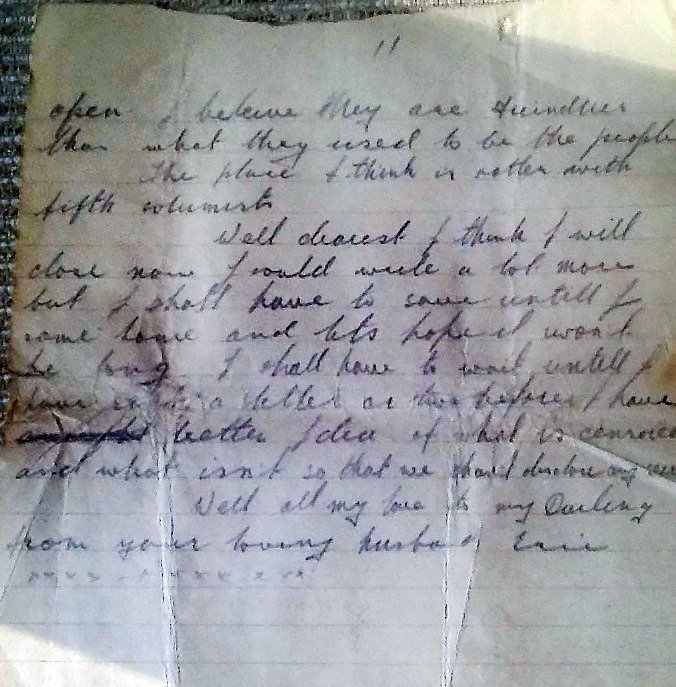 11
open I beleive they are friendlier
than what they used to be the people
The place I think is rotten with
fifth columists
Well dearest I think I will
close now I could write a lot more
but I shall have to save untill I
come home and lets hope it won't
be long I shall have to wait untill I
have a letter or two before I have
better Idea of what is censored
and what isn't so that we shan't disclose any
Well all my love to my Darling
from your loving husband Eric